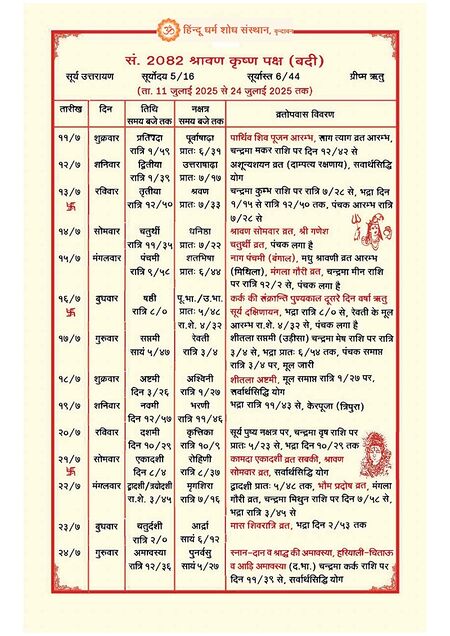 हिंदू धर्म शोध संस्थान, वृन्दावन
सं. 2082 श्रावण कृष्ण पक्ष (बदी)
सूर्य उत्तरायण सूर्योदय 5/16 सूर्यास्त 6/44 ग्रीष्म ऋतु
(ता. 11 जुलाई 2025 से 24 जुलाई 2025 तक)
तारीख दिन तिथि नक्षत्र व्रतोपवास विवरण
समय बजे तक समय बजे तक
११/७ शुक्रवार प्रतिपदा पूर्वाषाढ़ा पार्थिव शिव पूजन आरम्भ, साग त्याग व्रत आरम्भ,
रात्रि १/५९ प्रातः ६/३१ चन्द्रमा मकर राशि पर दिन १२/४२ से
१२/७ शनिवार द्वितीया उत्तराषाढ़ा अशून्यशयन व्रत (दाम्पत्य रक्षणाय), सवार्थसिद्धि
रात्रि १/३९ प्रातः ७/१७ योग
१३/७ रविवार तृतीया श्रवण चन्द्रमा कुम्भ राशि पर रात्रि ७/२८ से, भद्रा दिन
卐 रात्रि १२/५० प्रातः ७/३३ १/१५ से रात्रि १२/५० तक, पंचक आरम्भ रात्रि
७/२८ से
१४/७ सोमवार चतुर्थी धनिष्ठा श्रावण सोमवार व्रत, श्री गणेश
रात्रि ११/३५ प्रातः ७/२२ चतुर्थी व्रत, पंचक लगा है
१५/७ मंगलवार पंचमी शतभिषा नाग पंचमी (बंगाल), मधु श्रावणी व्रत आरम्भ
रात्रि ९/५८ प्रातः ६/४४ (मिथिला), मंगला गौरी व्रत, चन्द्रमा मीन राशि
पर रात्रि १२/२ से, पंचक लगा है
१६/७ बुधवार षष्ठी पू.भा./उ.भा. कर्क की संक्रान्ति पुण्यकाल दूसरे दिन वर्षा ऋतु
卐 रात्रि ८/० प्रातः ५/४८ सूर्य दक्षिणायन, भद्रा रात्रि ८/० से, रेवती के मूल
रा.शे. ४/३२ आरम्भ रा.शे. ४/३२ से, पंचक लगा है
१७/७ गुरुवार सप्तमी रेवती शीतला सप्तमी (उड़ीसा) चन्द्रमा मेष राशि पर रात्रि
सायं ५/४७ रात्रि ३/४ ३/४ से, भद्रा प्रातः ६/५४ तक, पंचक समाप्त
रात्रि ३/४ पर, मूल जारी
१८/७ शुक्रवार अष्टमी अश्विनी शीतला अष्टमी, मूल समाप्त रात्रि १/२७ पर,
दिन ३/२६ रात्रि १/२७ सर्वार्थसिद्धि योग
१९/७ शनिवार नवमी भरणी भद्रा रात्रि ११/४३ से, केरपूजा (त्रिपुरा)
दिन १२/५७ रात्रि ११/४६
२०/७ रविवार दशमी कृत्तिका सूर्य पुष्य नक्षत्र पर, चन्द्रमा वृष राशि पर
दिन १०/२९ रात्रि १०/९ प्रातः ५/२३ से, भद्रा दिन १०/२९ तक
२१/७ सोमवार एकादशी रोहिणी कामदा एकादशी व्रत सबकी, श्रावण
卐 दिन ८/४ रात्रि ८/३७ सोमवार व्रत, सर्वार्थसिद्धि योग
२२/७ मंगलवार द्वादशी/त्रयोदशी मृगशिरा द्वादशी प्रातः ५/४८ तक, भौम प्रदोष व्रत, मंगला
रा.शे. ३/४५ रात्रि ७/१६ गौरी व्रत, चन्द्रमा मिथुन राशि पर दिन ७/५८ से,
भद्रा रात्रि ३/४५ से
२३/७ बुधवार चतुर्दशी आर्द्रा मास शिवरात्रि व्रत, भद्रा दिन २/५३ तक
रात्रि २/० सायं ६/१२
२४/७ गुरुवार अमावस्या पुनर्वसु स्नान-दान व श्राद्ध की अमावस्या, हरियाली-चिताऊ
रात्रि १२/३६ सायं ५/२७ व आड़ि अमावस्या (द.भा.) चन्द्रमा कर्क राशि पर
दिन ११/३९ से, सर्वार्थसिद्धि योग